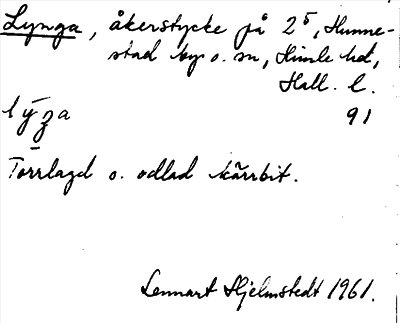 Lynga, åkerstycke på 2⁵, Hunne-
stad by o. sn, Himle hd,
Hall. l.
lyṉga 91
Torrlagd o. odlad kärrbit.
Lennart Hjelmstedt 1961.